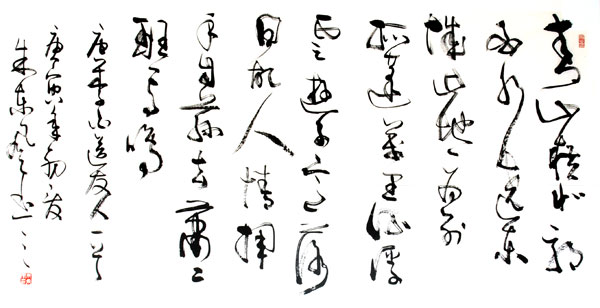 青山横北郭
白水遶东
城此地一为别
孤蓬万里征浮
云游子意落
日故人情挥
手自兹去萧々
班马鸣
唐李白送友人一首
庚寅年初夏
朱东